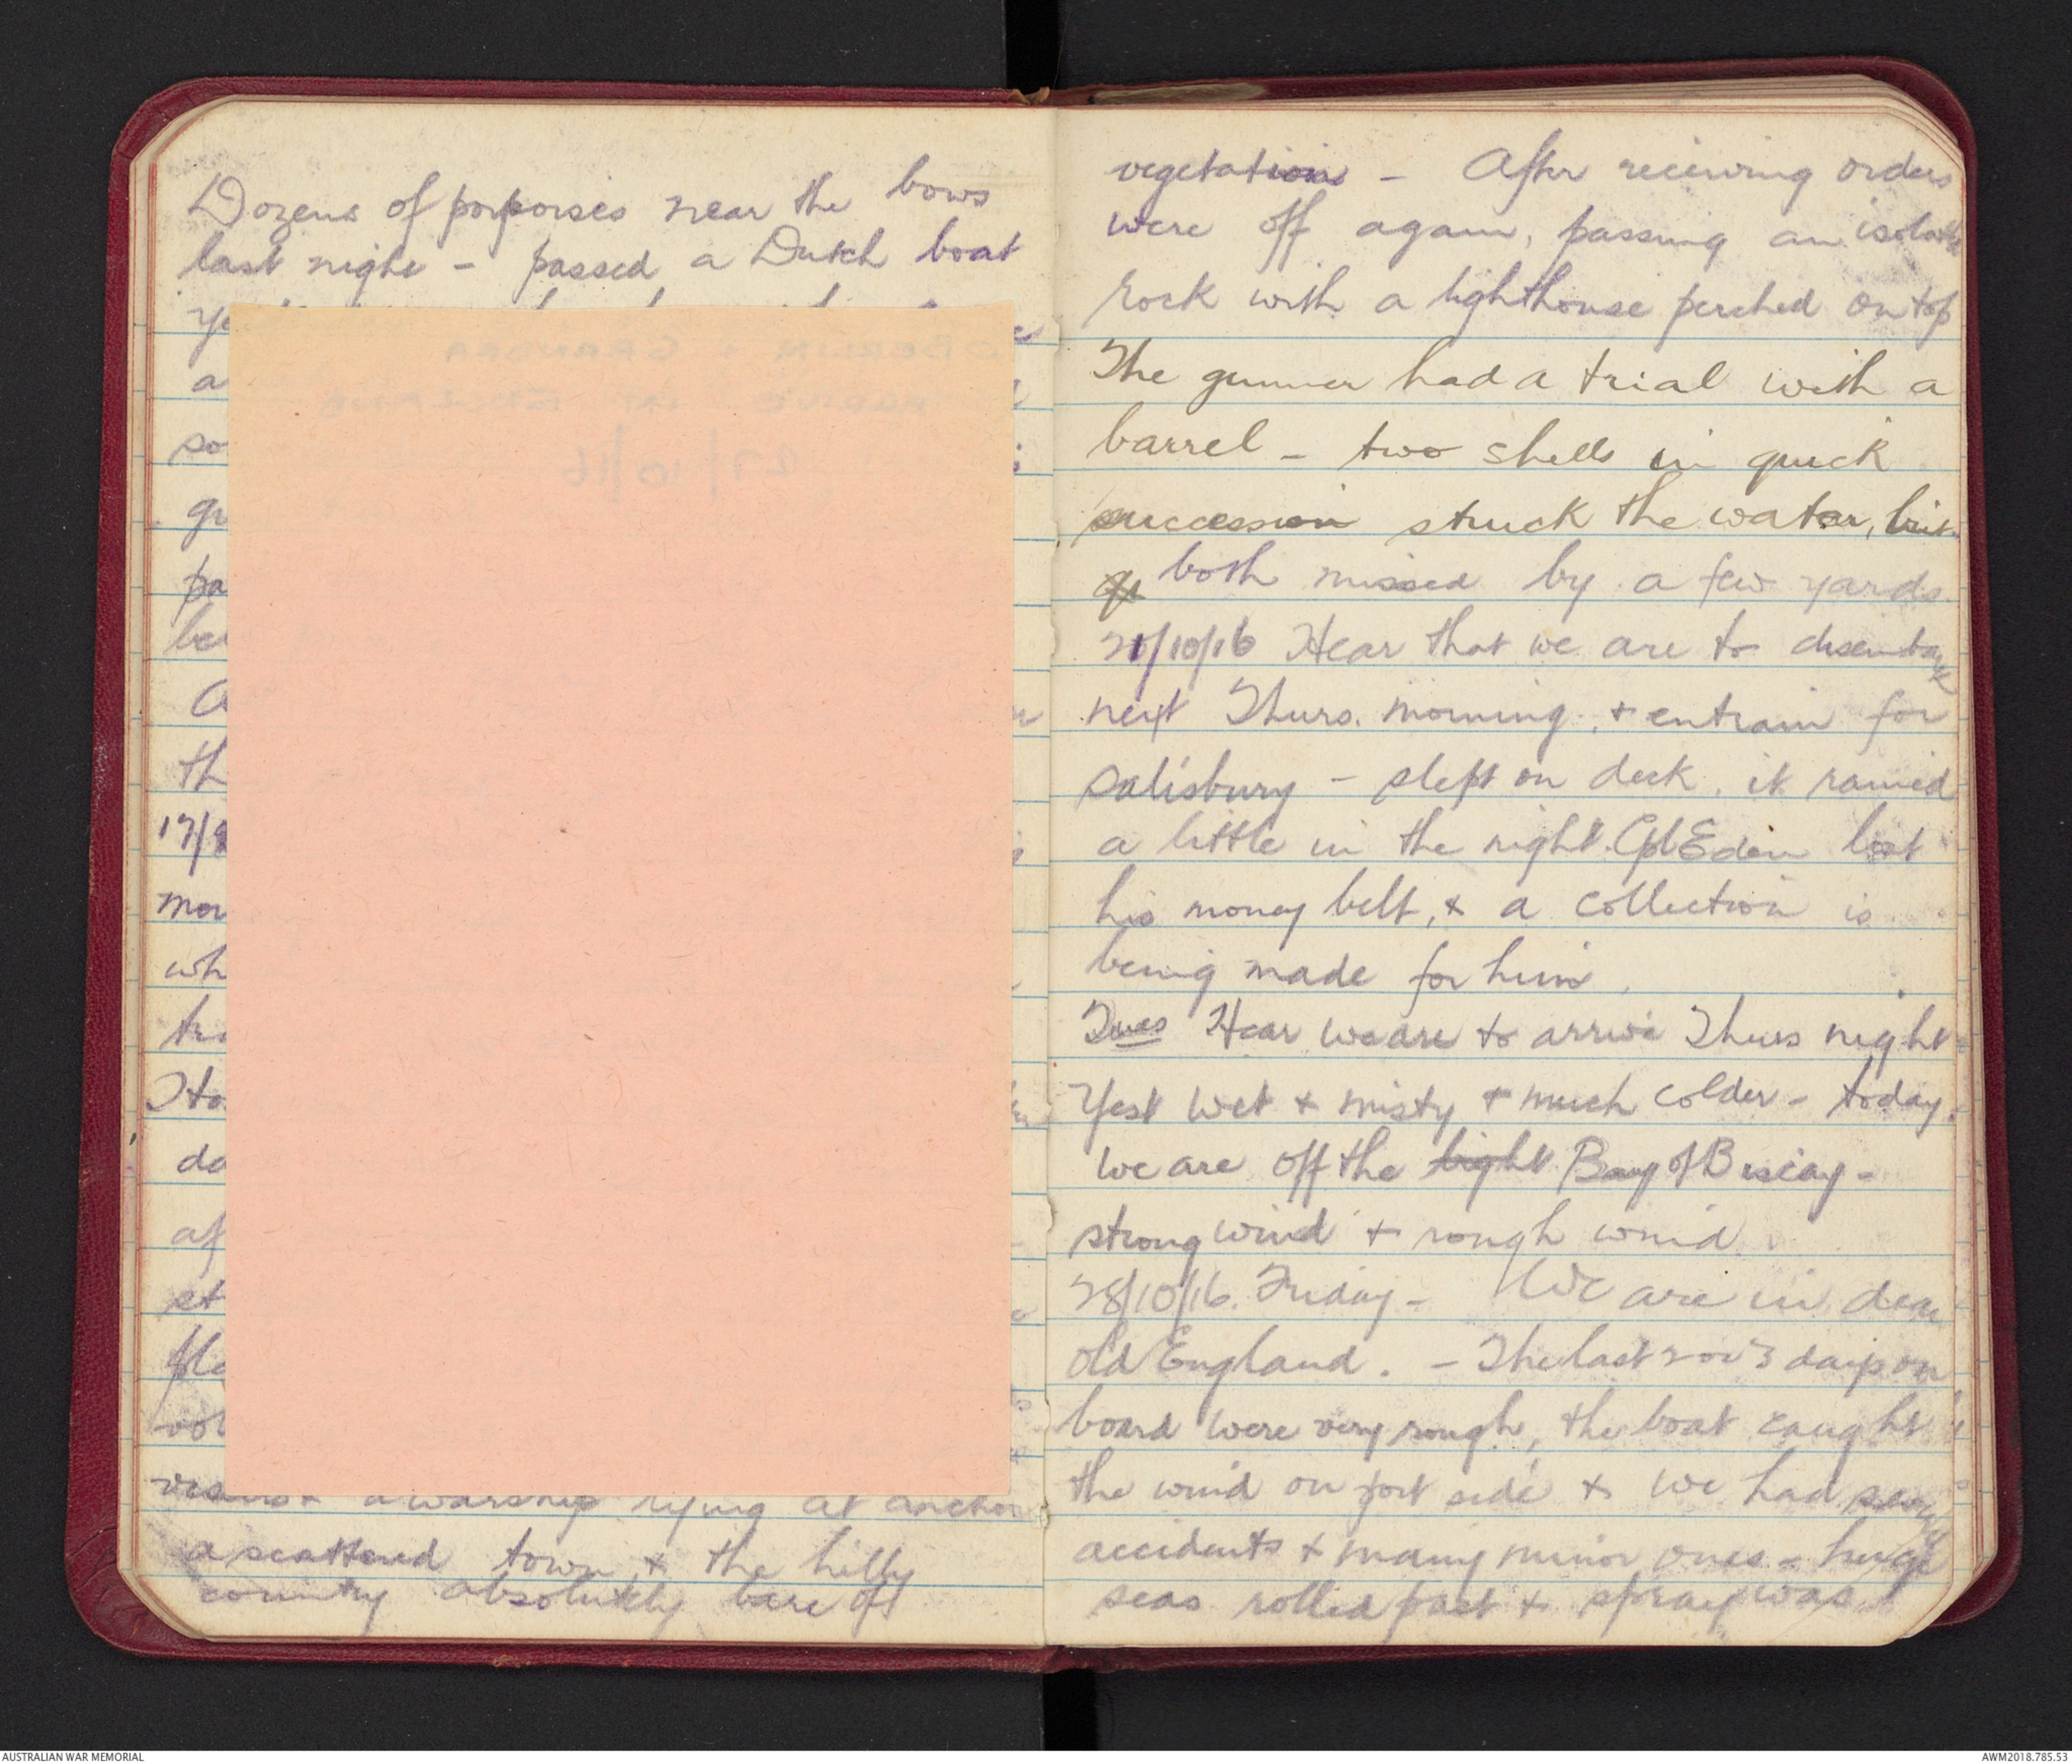 Dozens of porpoises near the bows
last night - passed a Dutch boat
ye
a
so
gr
pa
be
A
th
17/
mor
wh
tr
Ho
do
af
st
fla
vol
vessels & a warship lying at anchor
a scattered town & the hilly
country absolutely bare of
vegetation - After receiving orders
were off again, passing an isolated
rock with a lighthouse perched on top
The gunner had a trial with a
barrel - two shells in quick
succession struck the water, but
both missed by a few yards.
21/10/16 Hear that we are to disembark
next Thurs. morning. & entrain for
Salisbury - slept on deck. it rained
a little in the night. Cpl Eden lost
his money belt, & a collection is
being made for him.
Tues Hear we are to arrive Thurs night
Yest wet & misty & much colder - today.
we are off the bight Bay of Biscay -
strong wind & rough wind.
28/10/16. Friday - We are in dear
old England. - The last 2 or 3 days on
board were very rough, the boat caught
the wind on port side & we had several
accidents & many minor ones - huge
seas rolled past & spray was
AUSTRALIAN WAR MEMORIAL
AWM2018.785.53